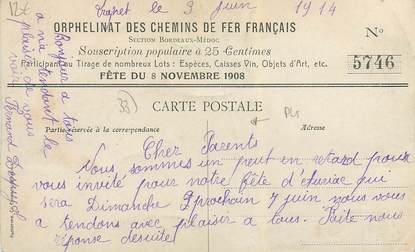 12€
Trajet le 3 Juin 1914
ORPHELINAT DES CHEMINS DE FER FRANÇAIS
SECTION BORDEAUX-MÉDOC
Souscription populaire à 25 Centimes
Participant au Tirage de nombreux Lots : Espèces, Caisses Vin, Objets d'Art, etc.
FÊTE DU 8 NOVEMBRE 1908
No
5746
(33)
CARTE POSTALE
Partie réservée à la correspondance
Adresse
Cher Parents
Nous sommes un peut en retard pour
vous invité pour notre fête qui
sera Dimanche prochain 7 juin nous vous
a tendons avec plaisir a tous. Faite nous
réponse desuite
Bonjour a tous
a n'a tendent le
plaisir de vous
voir